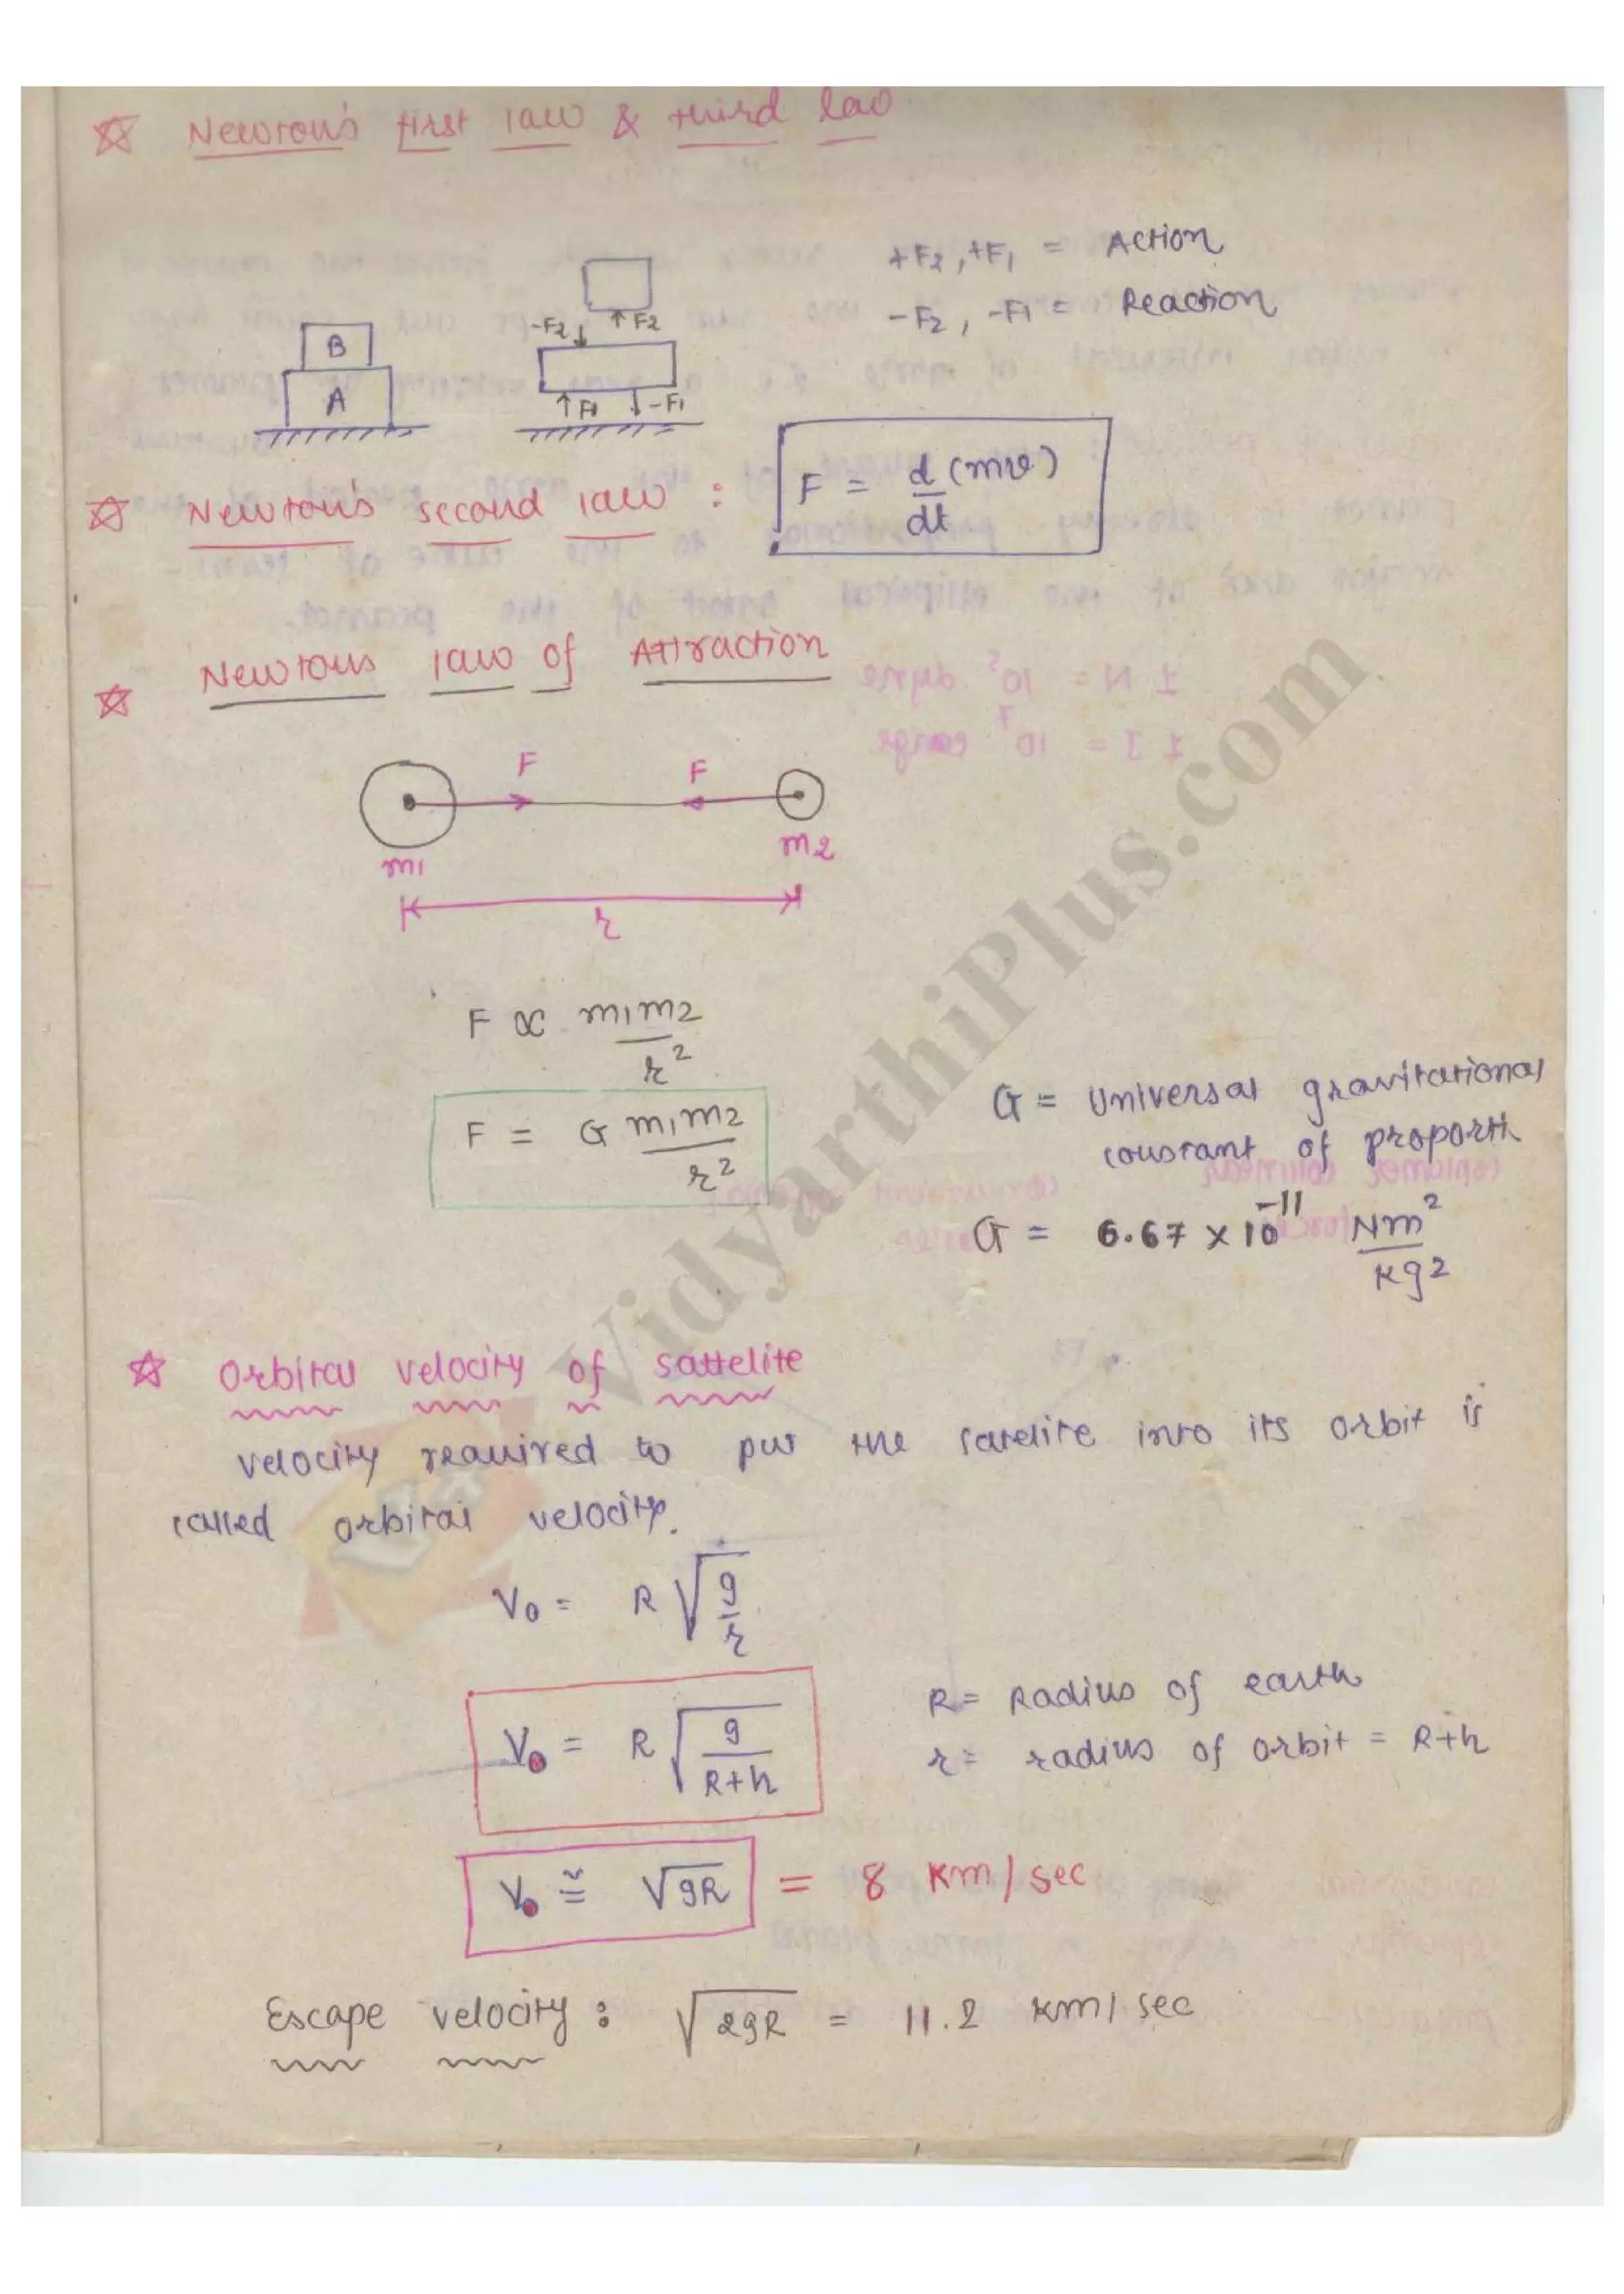 ☆ Newton's first law & third law
+F2, +F1 = Action
-F2, -F1 = Reaction
B
A
-F2 ↓ ↑ F2
↑F1 ↓-F1
☆ Newton's second law : F = d/dt (mv)
☆ Newtons law of Attraction
F F
m1 m2
r
F ∝ m1m2/r²
F = G m1m2/r²
G = Universal gravitational
constant of proporti
G = 6.67 × 10⁻¹¹ Nm²/kg2
☆ Orbital velocity of sattelite
velocity required to put the satelite into its orbit is
called orbital velocity.
V0 = R √(g/r)
V0 = R √(g/(R+h))
R = Radius of earth
r = radius of orbit = R+h
V0 ≅ √gR = 8 km/sec
Escape velocity : √2gR = 11.2 km/sec
VidyarthiPlus.com